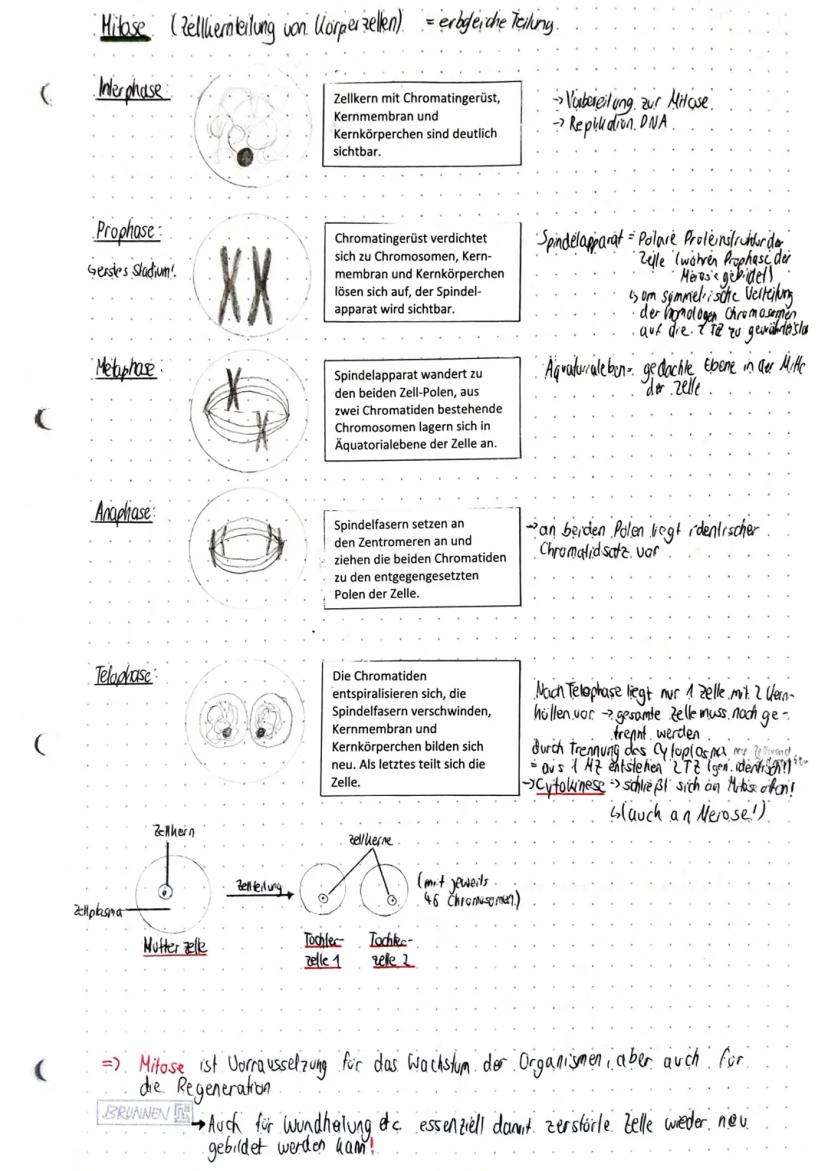 Mitose (Zellkernteilung von Körperzellen) = erbgleiche Teilung.
Interphase:
Zellkern mit Chromatingerüst,
Kernmembran und
Kernkörperchen sind deutlich
sichtbar.
→ Vorbereitung zur Mitose
→ Replikation DNA
Prophase:
↳ erstes Stadium!
Chromatingerüst verdichtet
sich zu Chromosomen, Kern-
membran und Kernkörperchen
lösen sich auf, der Spindel-
apparat wird sichtbar.
Spindelapparat = Polare Proteinstruktur der
Zelle (währen Prophase der
Meiose gebildet)
↳ um symmetrische Verteilung
der homologen Chromosomen
auf die 2 TZ zu gewährleisten
Metaphase:
Spindelapparat wandert zu
den beiden Zell-Polen, aus
zwei Chromatiden bestehende
Chromosomen lagern sich in
Äquatorialebene der Zelle an.
gedachte Ebene in der Mitte
der Zelle
Anaphase:
Spindelfasern setzen an
den Zentromeren an und
ziehen die beiden Chromatiden
zu den entgegengesetzten
Polen der Zelle.
→ an beiden Polen liegt identischer
Chromatidsatz vor
Telophase:
Die Chromatiden
entspiralisieren sich, die
Spindelfasern verschwinden,
Kernmembran und
Kernkörperchen bilden sich
neu. Als letztes teilt sich die
Zelle.
Nach Telophase liegt nur 1 Zelle mit 2 Kern-
hüllen vor → gesamte Zelle muss noch ge-
trennt werden
durch Trennung des Cytoplasma
= aus 1 MZ entstehen 2 TZ (gen. identisch!)
→ Cytokinese → schließt sich an Mitose
↳ (auch an Meiose!)
Zellkern
Zellplasma
Mutterzelle
Zellteilung
Zellkerne
(mit jeweils
46 Chromosomen)
Tochter-
zelle 1
Tochter-
zelle 2
=> Mitose ist Vorraussetzung für das Wachstum der Organismen, aber auch für
die Regeneration
BRUNNEN
→ Auch für Wundheilung etc essenziell damit zerstörte Zelle wieder neu
gebildet werden kann!